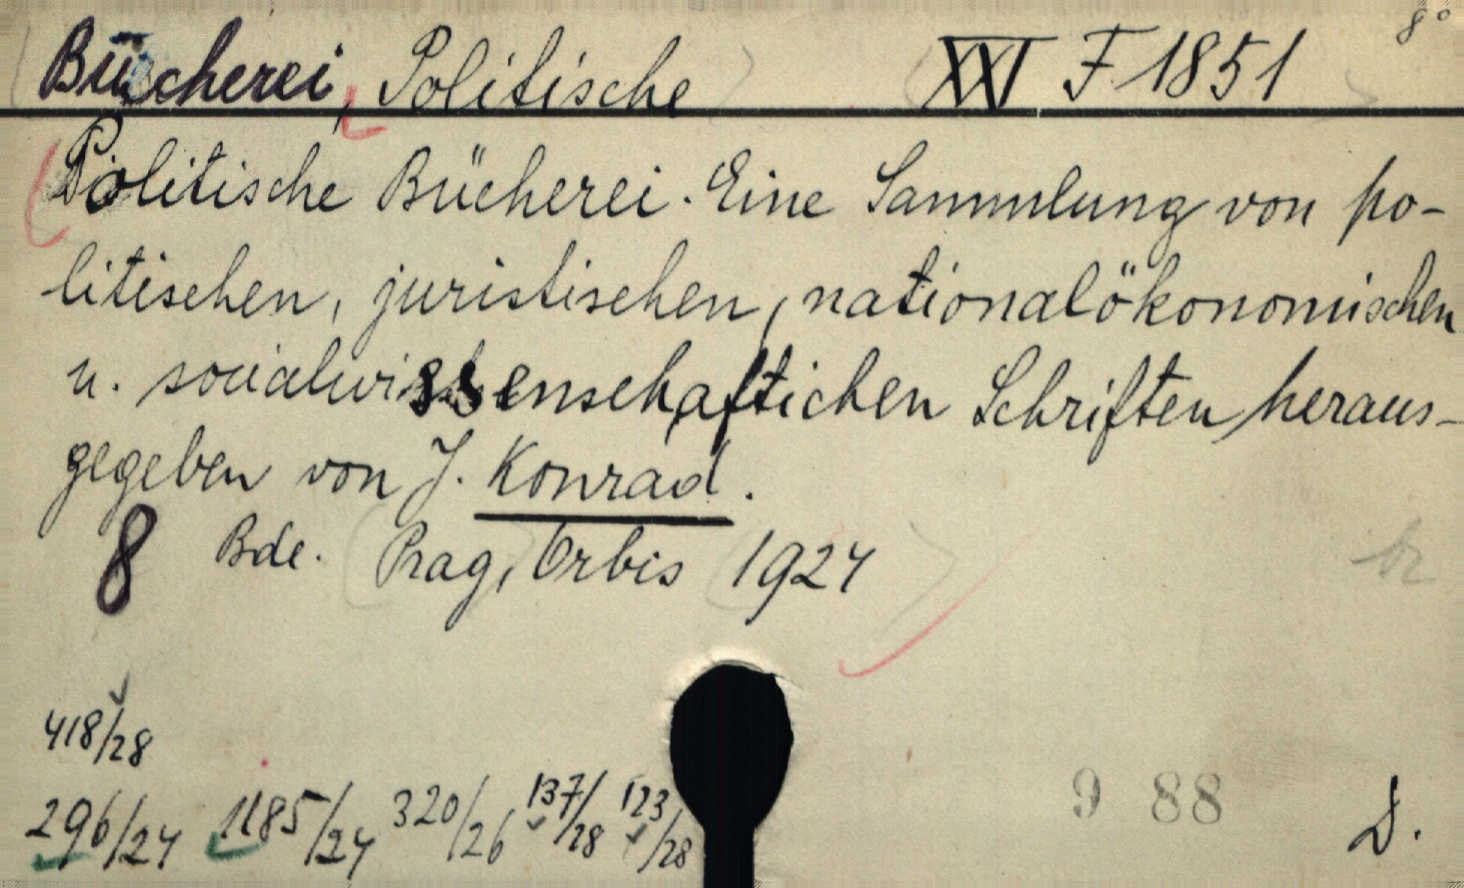 8°
Bücherei, Politische XXI F 1851
Politische Bücherei. Eine Sammlung von po-
litischen, juristischen, nationalökonomischen
u. socialwissenschaftichen Schriften heraus-
gegeben von J. Konrad.
8 Bde. Prag, Orbis 1924
br
418/28
296/24 1185/24 320/26 137/28 123/28
9 88 D.